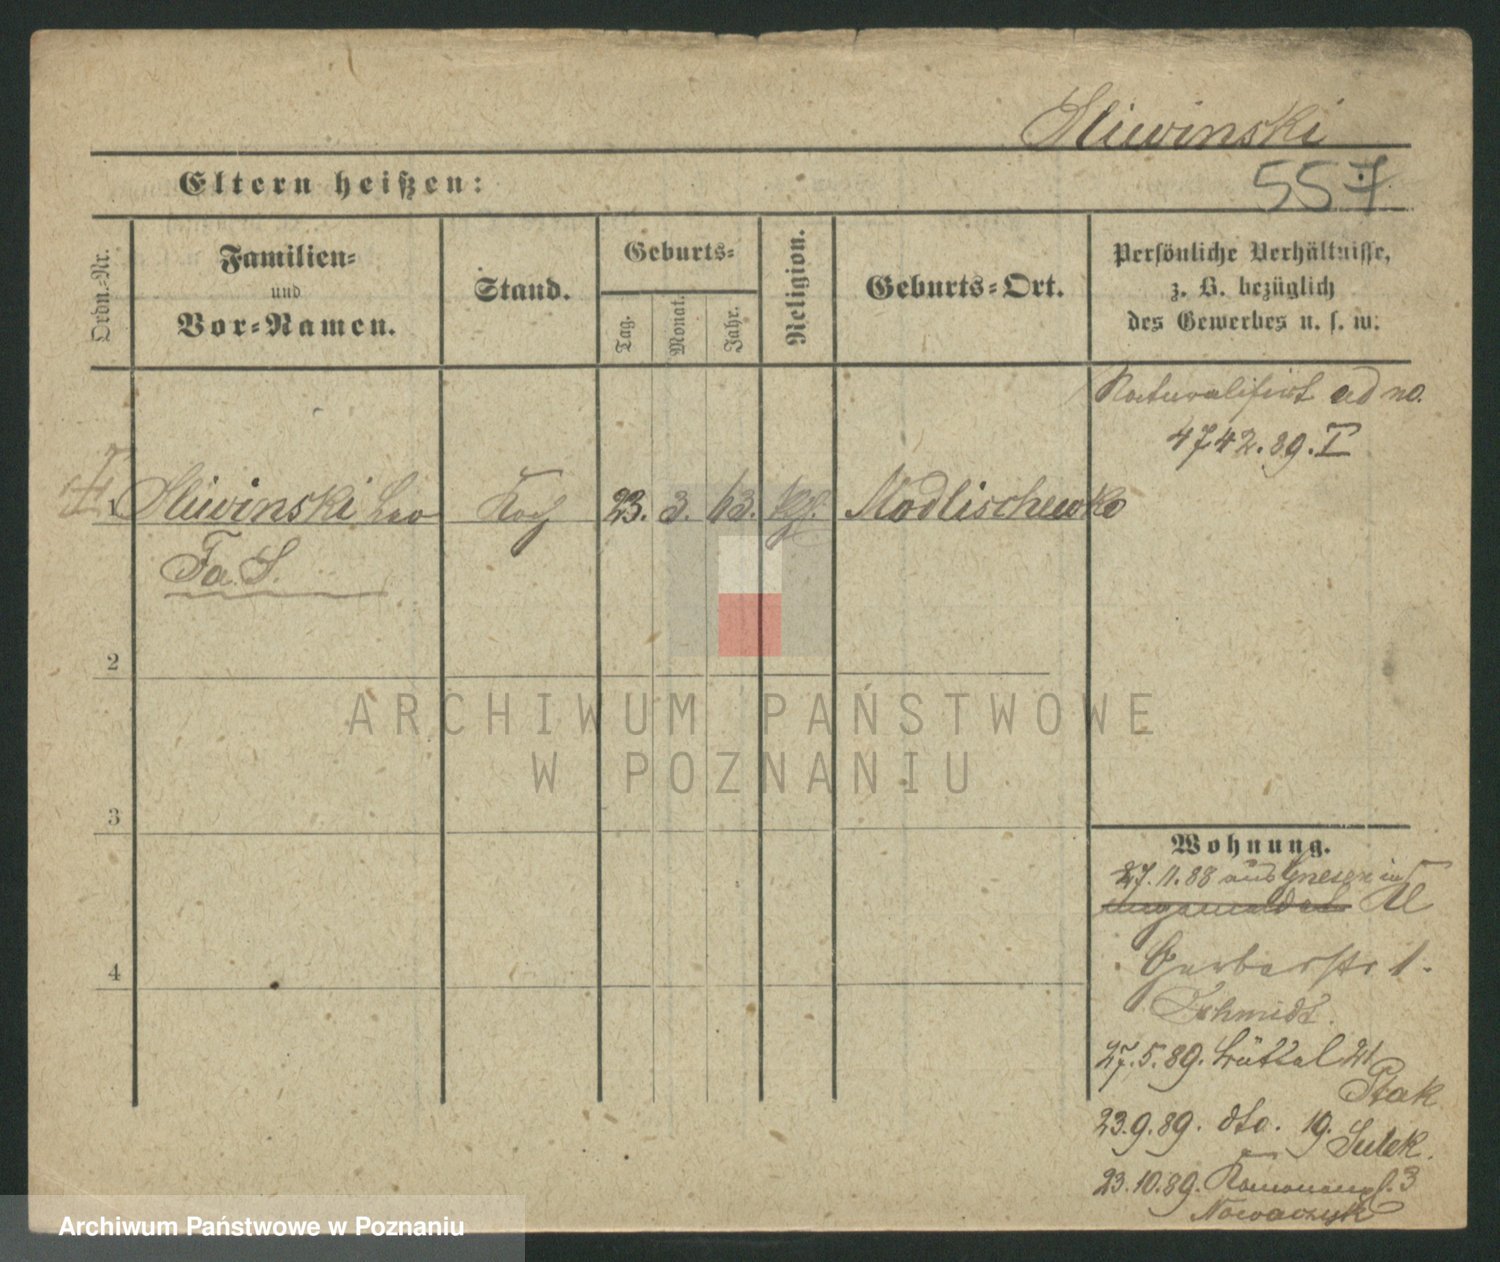 Sliwinski
557
Eltern heißen:
Ordn.-Nr.
Familien-
und
Vor-Namen.
Stand.
Geburts-
Tag.
Monat.
Jahr.
Religion.
Geburts-Ort.
Persönliche Verhältnisse,
z. B. bezüglich
des Gewerbes u. s. w.
Naturalisirt ad no.
4742.89.I
1 Sliwinski Leo Koch 23. 3. 63. kf. Modlischewko
Fa. S.
2
3
4
Wohnung.
27.11.88 aus Gnesen
Gerberstr 1.
Schmidt.
27.5.89. 21
Ptak
23.9.89. dto. 19.
Sulek.
23.10.89. 3
Nowaczyk
ARCHIWUM PAŃSTWOWE
W POZNANIU
Archiwum Państwowe w Poznaniu